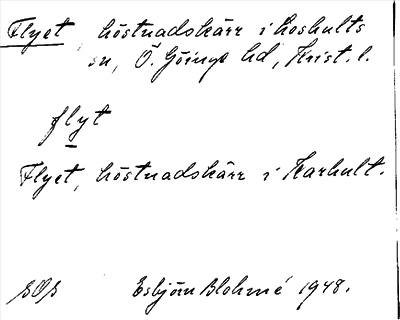 Flyet, höstnadskärr i Loshults
sn, Ö. Göinge hd, Krist. l.
flyt
Flyet, höstnadskärr i Karhult.
Esbjörn Blohmé 1948.